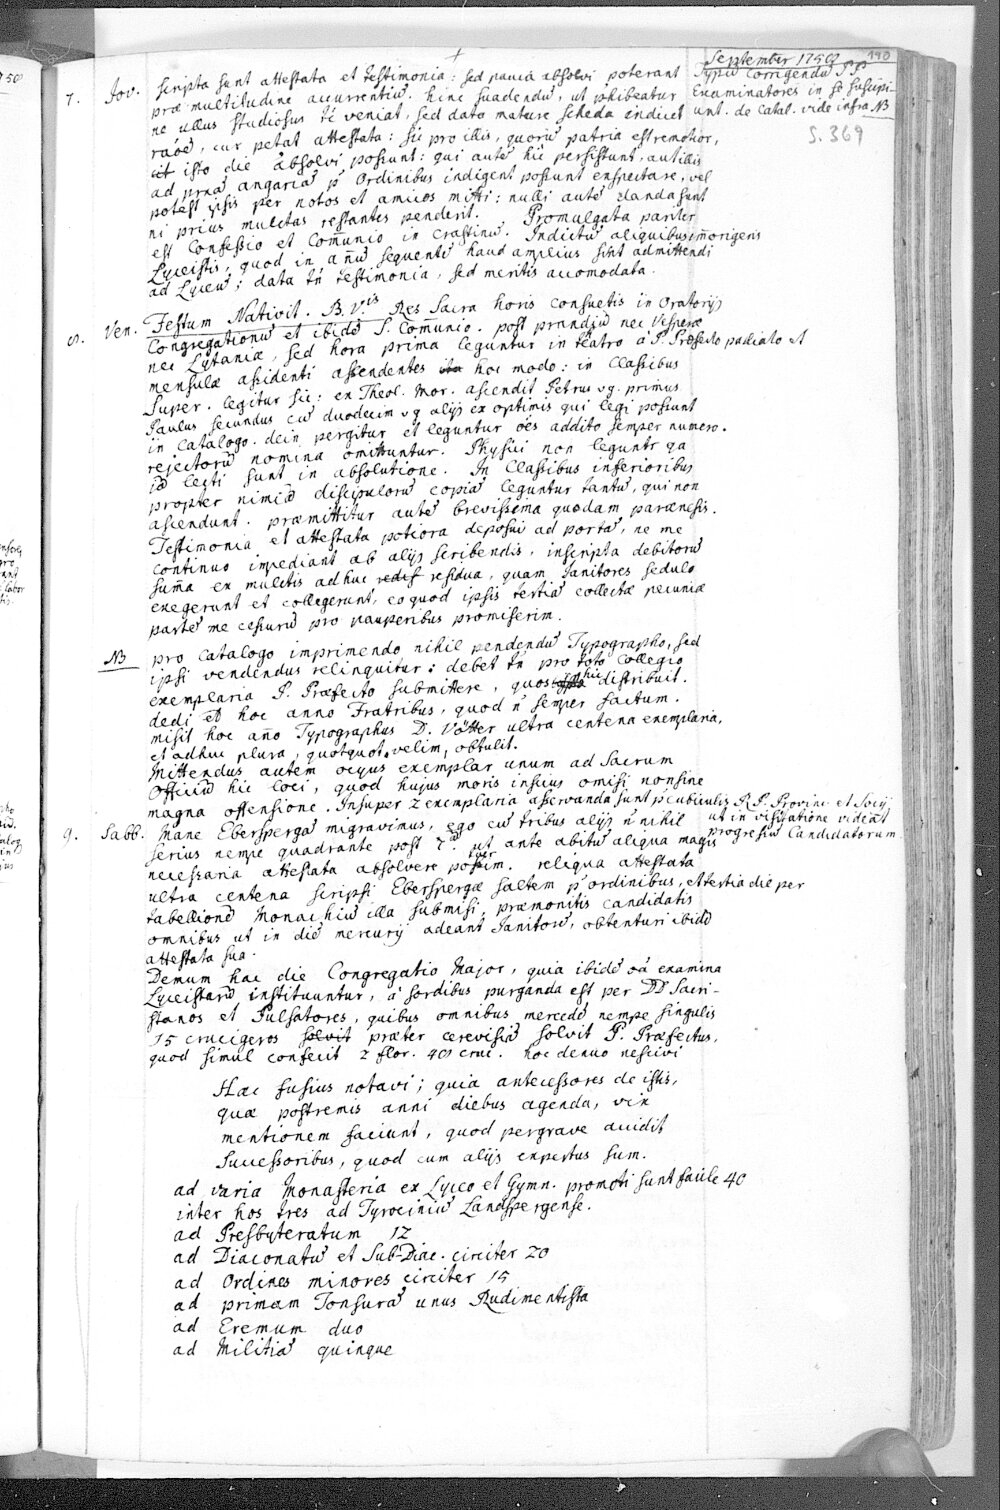 September 1750
190
Typum Corrigendū PP
Examinatores in se suscipi-
unt. de Catal. vide infra NB
S. 369
7. Jov. scripta sunt attestata et testimonia: sed pauca absolvi poterant
præ multitudine accurrentiū. hinc suadendū, ut prohibeatur
ne ullus studiosus tū veniat, sed data mature scheda indicet
raōē, cur petat attestata: sic pro illis, quorū patria est remotior,
ut isto die absolvi possunt: qui autē hic persistunt, aut illis
ad prxā angariā p Ordinibus indigent possunt expectare, vel
potest ipsis per notos et amicos mitti: nulli autē danda sunt
ni prius mulctas restantes penderit. Promulgata pariter
est Confessio et Com̄unio in crastinū. Indictū aliquibus im̄origeris
Lyceistis, quod in an̄ū sequentē haud amplius sint admittendi
ad Lyceū; data tn̄ testimonia, sed meritis accomodata.
8. Ven. Festum Nativit. B. V.is Res Sacra horis consuetis in Oratorijs
Congregationū et ibidē S. Com̄unio. post prandiū nec Vesperæ
nec Lytaniæ, sed hora prima leguntur in teatro a P. Præfecto palliato et
mensulæ assidenti ascendentes ita hoc modo: in Classibus
Super. legitur sic: ex Theol. Mor. ascendit Petrus vg. primus
Paulus secundus cū duodecim vg alijs ex optimis qui legi possunt
in catalogo. dein pergitur et leguntur ōēs addito semper numero.
rejectorū nomina omittuntur. Physici non leguntr qa
jā lecti sunt in absolutione. In Classibus inferioribus
propter nimiā discipulorū copiā leguntur tantū, qui non
ascendunt. præmittitur autē brevissima quædam parænesis.
Testimonia et attestata potiora deposui ad portā, ne me
continuo impediant ab alijs scribendis, inscripta debitorū
sum̄a ex mulctis adhuc residua, quam Janitores sedulo
exegerunt et collegerunt, eo quod ipsis tertiā collectæ pecuniæ
partē me cessurū pro pauperibus promiserim.
NB pro catalogo imprimendo nihil pendendū Typographo, sed
ipsi vendendus relinquitur: debet tn̄ pro toto Collegio
exemplaria P. Præfecto submittere, quos hic distribuit.
dedi et hoc anno Fratribus, quod n̄ semper factum.
misit hoc an̄o Typographus D. Vötter ultra centena exemplaria,
et adhuc plura, quotquot velim, obtulit.
Mittendus autem ocyus exemplar unum ad Sacrum
Officiū hic loci, quod hujus moris inscius omisi non sine
magna offensione. Insuper 2 exemplaria asservanda sunt p cubiculis R. P. Provinc. et Socij
ut in visitatione videāt
progressū Candidatorum.
9. Sabb. Mane Eberspergā migravimus, ego cū tribus alijs n̄ nihil
serius nempe quadrante post 7. ut ante abitū aliqua magis
necessaria attestata absolvere possem. reliqua attestata
ultra centena scripsi Eberspergæ saltem p ordinibus, et tertia die per
tabellionē Monachiū illa submisi, præmonitis candidatis
omnibus ut in die mercurij adeant Janitorē, obtenturi ibidē
attestata sua.
Demum hac die Congregatio Major, quia ibidē oā examina
Lyceistarū instituuntur, á sordibus purganda est per DD Sacri-
stanos et Pulsatores, quibus omnibus mercedē nempe singulis
15 crucigeros solvit præter cerevisiā solvit P. Præfectus,
quod simul confecit 2 flor. 40 cruc. hoc denuo nescivi
Hæc fusius notavi; quia antecessores de istis,
quæ postremis anni diebus agenda, vix
mentionem faciunt, quod pergrave accidit
Successoribus, quod cum alijs expertus sum.
ad varia Monasteria ex Lyceo et Gymn. promoti sunt facile 40
inter hos tres ad Tyrociniū Landspergense.
ad Presbyteratum 12
ad Diaconatū et Sub-Diac. circiter 20
ad Ordines minores circiter 15
ad primam Tonsurā unus Rudimentista
ad Eremum duo
ad Militiā quinque